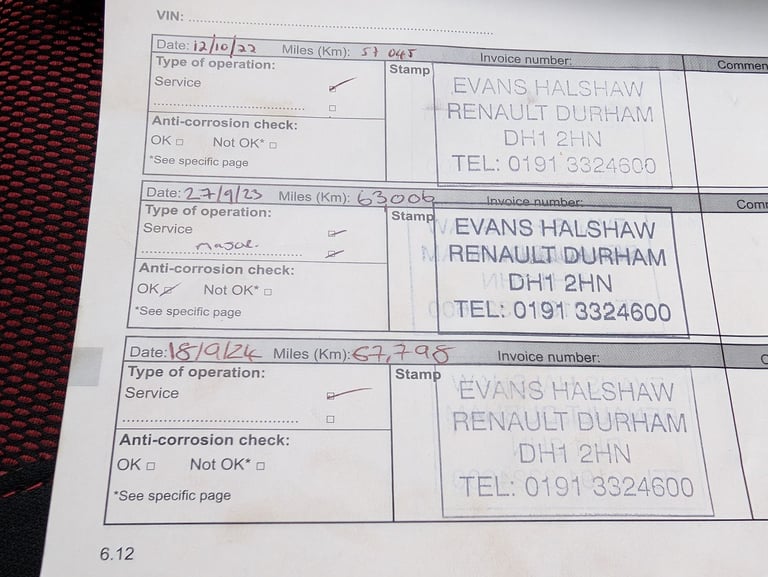 VIN:
Date: 12/10/22 Miles (Km): 57 045 Invoice number: Commen
Type of operation: Stamp
Service
Anti-corrosion check:
OK Not OK*
*See specific page
EVANS HALSHAW
RENAULT DURHAM
DH1 2HN
TEL: 0191 3324600
Date: 27/9/23 Miles (Km): 63006 Invoice number: Com
Type of operation: Stamp
Service
Anti-corrosion check:
OK Not OK*
*See specific page
EVANS HALSHAW
RENAULT DURHAM
DH1 2HN
TEL: 0191 3324600
Date: 18/9/24 Miles (Km): 67,798 Invoice number: C
Type of operation: Stamp
Service
Anti-corrosion check:
OK Not OK*
*See specific page
EVANS HALSHAW
RENAULT DURHAM
DH1 2HN
TEL: 0191 3324600
6.12